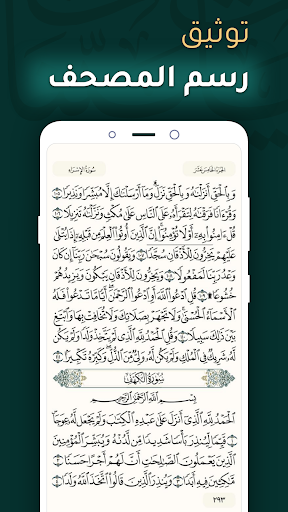 توثيق
رسم المصحف
الجزء الخامس عشر
سورة الإسراء
وَبِالْحَقِّ أَنزَلْنَٰهُ وَبِالْحَقِّ نَزَلَ وَمَا أَرْسَلْنَٰكَ إِلَّا مُبَشِّرًا وَنَذِيرًا ١٠٥
وَقُرْءَانًا فَرَقْنَٰهُ لِتَقْرَأَهُ عَلَى النَّاسِ عَلَىٰ مُكْثٍ وَنَزَّلْنَٰهُ تَنزِيلًا ١٠٦
قُلْ ءَامِنُوا بِهِ أَوْ لَا تُؤْمِنُوا إِنَّ الَّذِينَ أُوتُوا الْعِلْمَ مِن قَبْلِهِ إِذَا يُتْلَىٰ
عَلَيْهِمْ يَخِرُّونَ لِلْأَذْقَانِ سُجَّدًا ١٠٧ وَيَقُولُونَ سُبْحَٰنَ رَبِّنَا إِن كَانَ
وَعْدُ رَبِّنَا لَمَفْعُولًا ١٠٨ وَيَخِرُّونَ لِلْأَذْقَانِ يَبْكُونَ وَيَزِيدُهُمْ
خُشُوعًا ١٠٩ قُلِ ادْعُوا اللَّهَ أَوِ ادْعُوا الرَّحْمَٰنَ أَيًّا مَّا تَدْعُوا فَلَهُ
الْأَسْمَاءُ الْحُسْنَىٰ وَلَا تَجْهَرْ بِصَلَاتِكَ وَلَا تُخَافِتْ بِهَا وَابْتَغِ
بَيْنَ ذَٰلِكَ سَبِيلًا ١١٠ وَقُلِ الْحَمْدُ لِلَّهِ الَّذِي لَمْ يَتَّخِذْ وَلَدًا وَلَمْ يَكُن
لَّهُ شَرِيكٌ فِي الْمُلْكِ وَلَمْ يَكُن لَّهُ وَلِيٌّ مِّنَ الذُّلِّ وَكَبِّرْهُ تَكْبِيرًا ١١١
سُورَةُ الْكَهْفِ
بِسْمِ اللَّهِ الرَّحْمَٰنِ الرَّحِيمِ
الْحَمْدُ لِلَّهِ الَّذِي أَنزَلَ عَلَىٰ عَبْدِهِ الْكِتَٰبَ وَلَمْ يَجْعَل لَّهُ عِوَجَا
١ قَيِّمًا لِّيُنذِرَ بَأْسًا شَدِيدًا مِّن لَّدُنْهُ وَيُبَشِّرَ الْمُؤْمِنِينَ
الَّذِينَ يَعْمَلُونَ الصَّٰلِحَٰتِ أَنَّ لَهُمْ أَجْرًا حَسَنًا ٢
مَّٰكِثِينَ فِيهِ أَبَدًا ٣ وَيُنذِرَ الَّذِينَ قَالُوا اتَّخَذَ اللَّهُ وَلَدًا ٤
٢٩٣